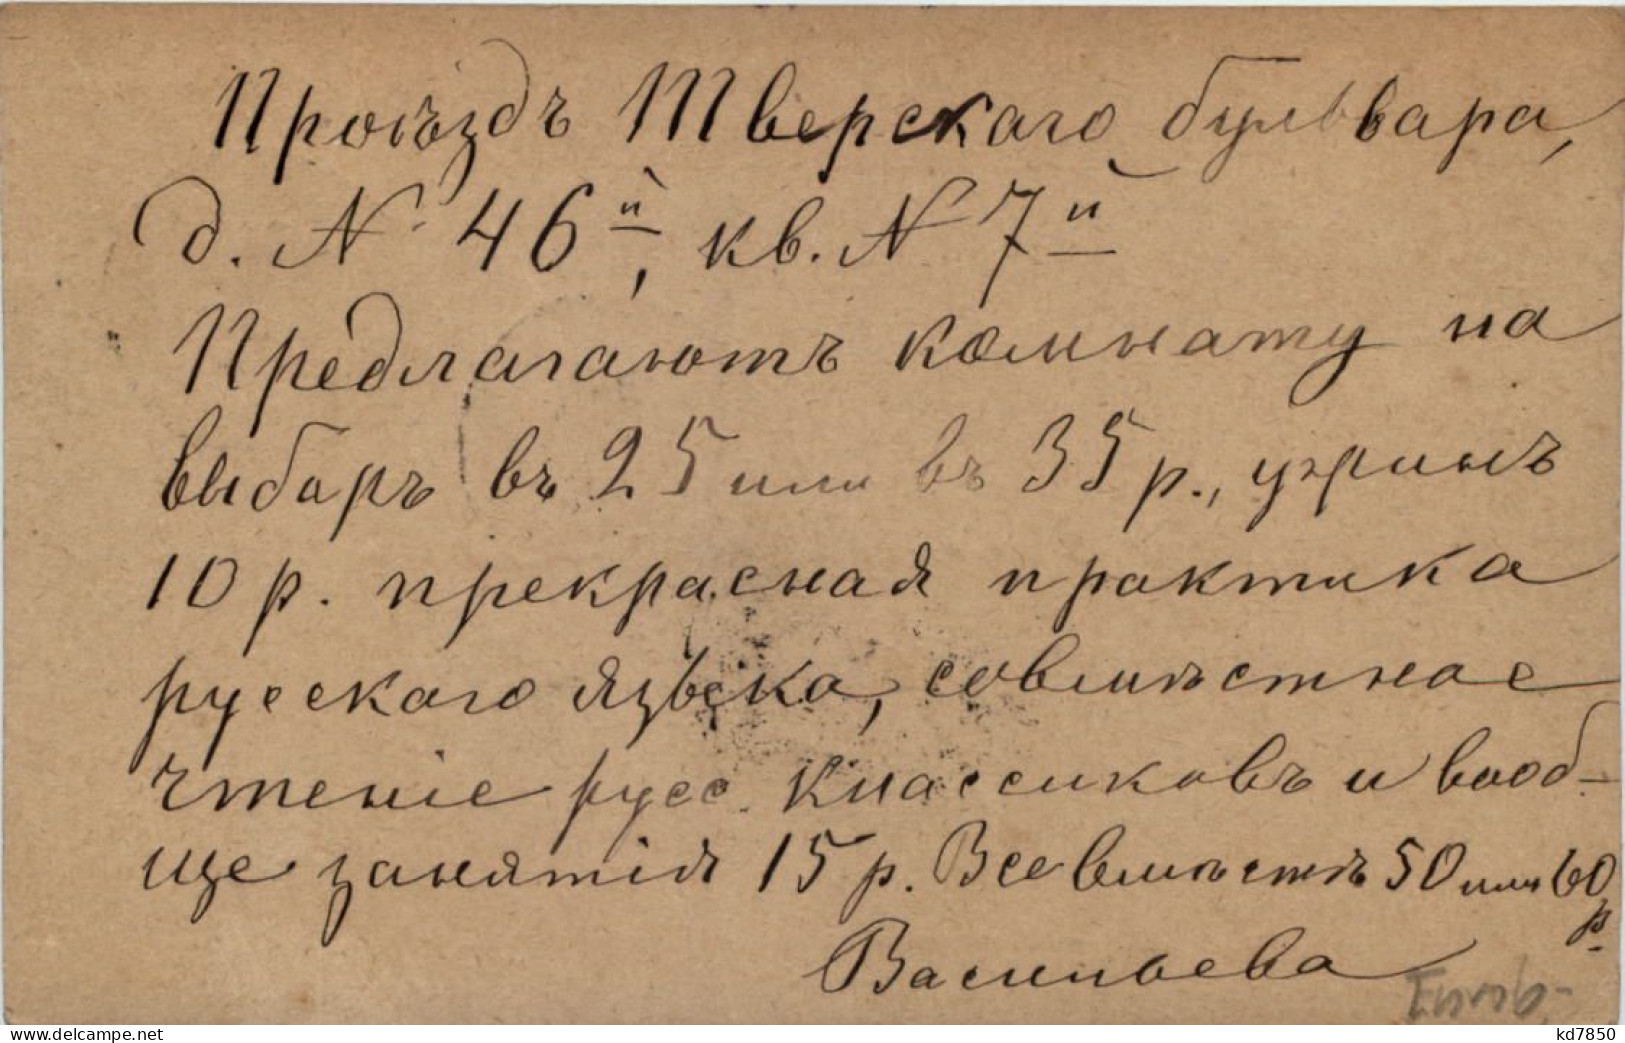 Проѣздъ Тверскаго бульвара,
д. № 46й, кв. № 7й
Предлагаютъ комнату на
выборъ въ 25 или въ 35 р., ужинъ
10 р. прекрасная практика
русскаго языка, совмѣстное
чтеніе русс. классиковъ и вооб-
ще занятія 15 р. Все вмѣстѣ 50 или 60
р.
Васильева
www.delcampe.net
kd7850